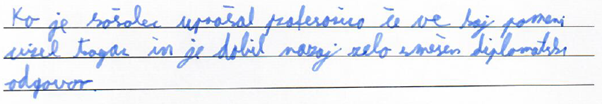 Ko je sošolec uprašal profesorico če ve kaj pomeni
visel trogac in je dobil nazaj zelo smešen diplomatski
odgovor.